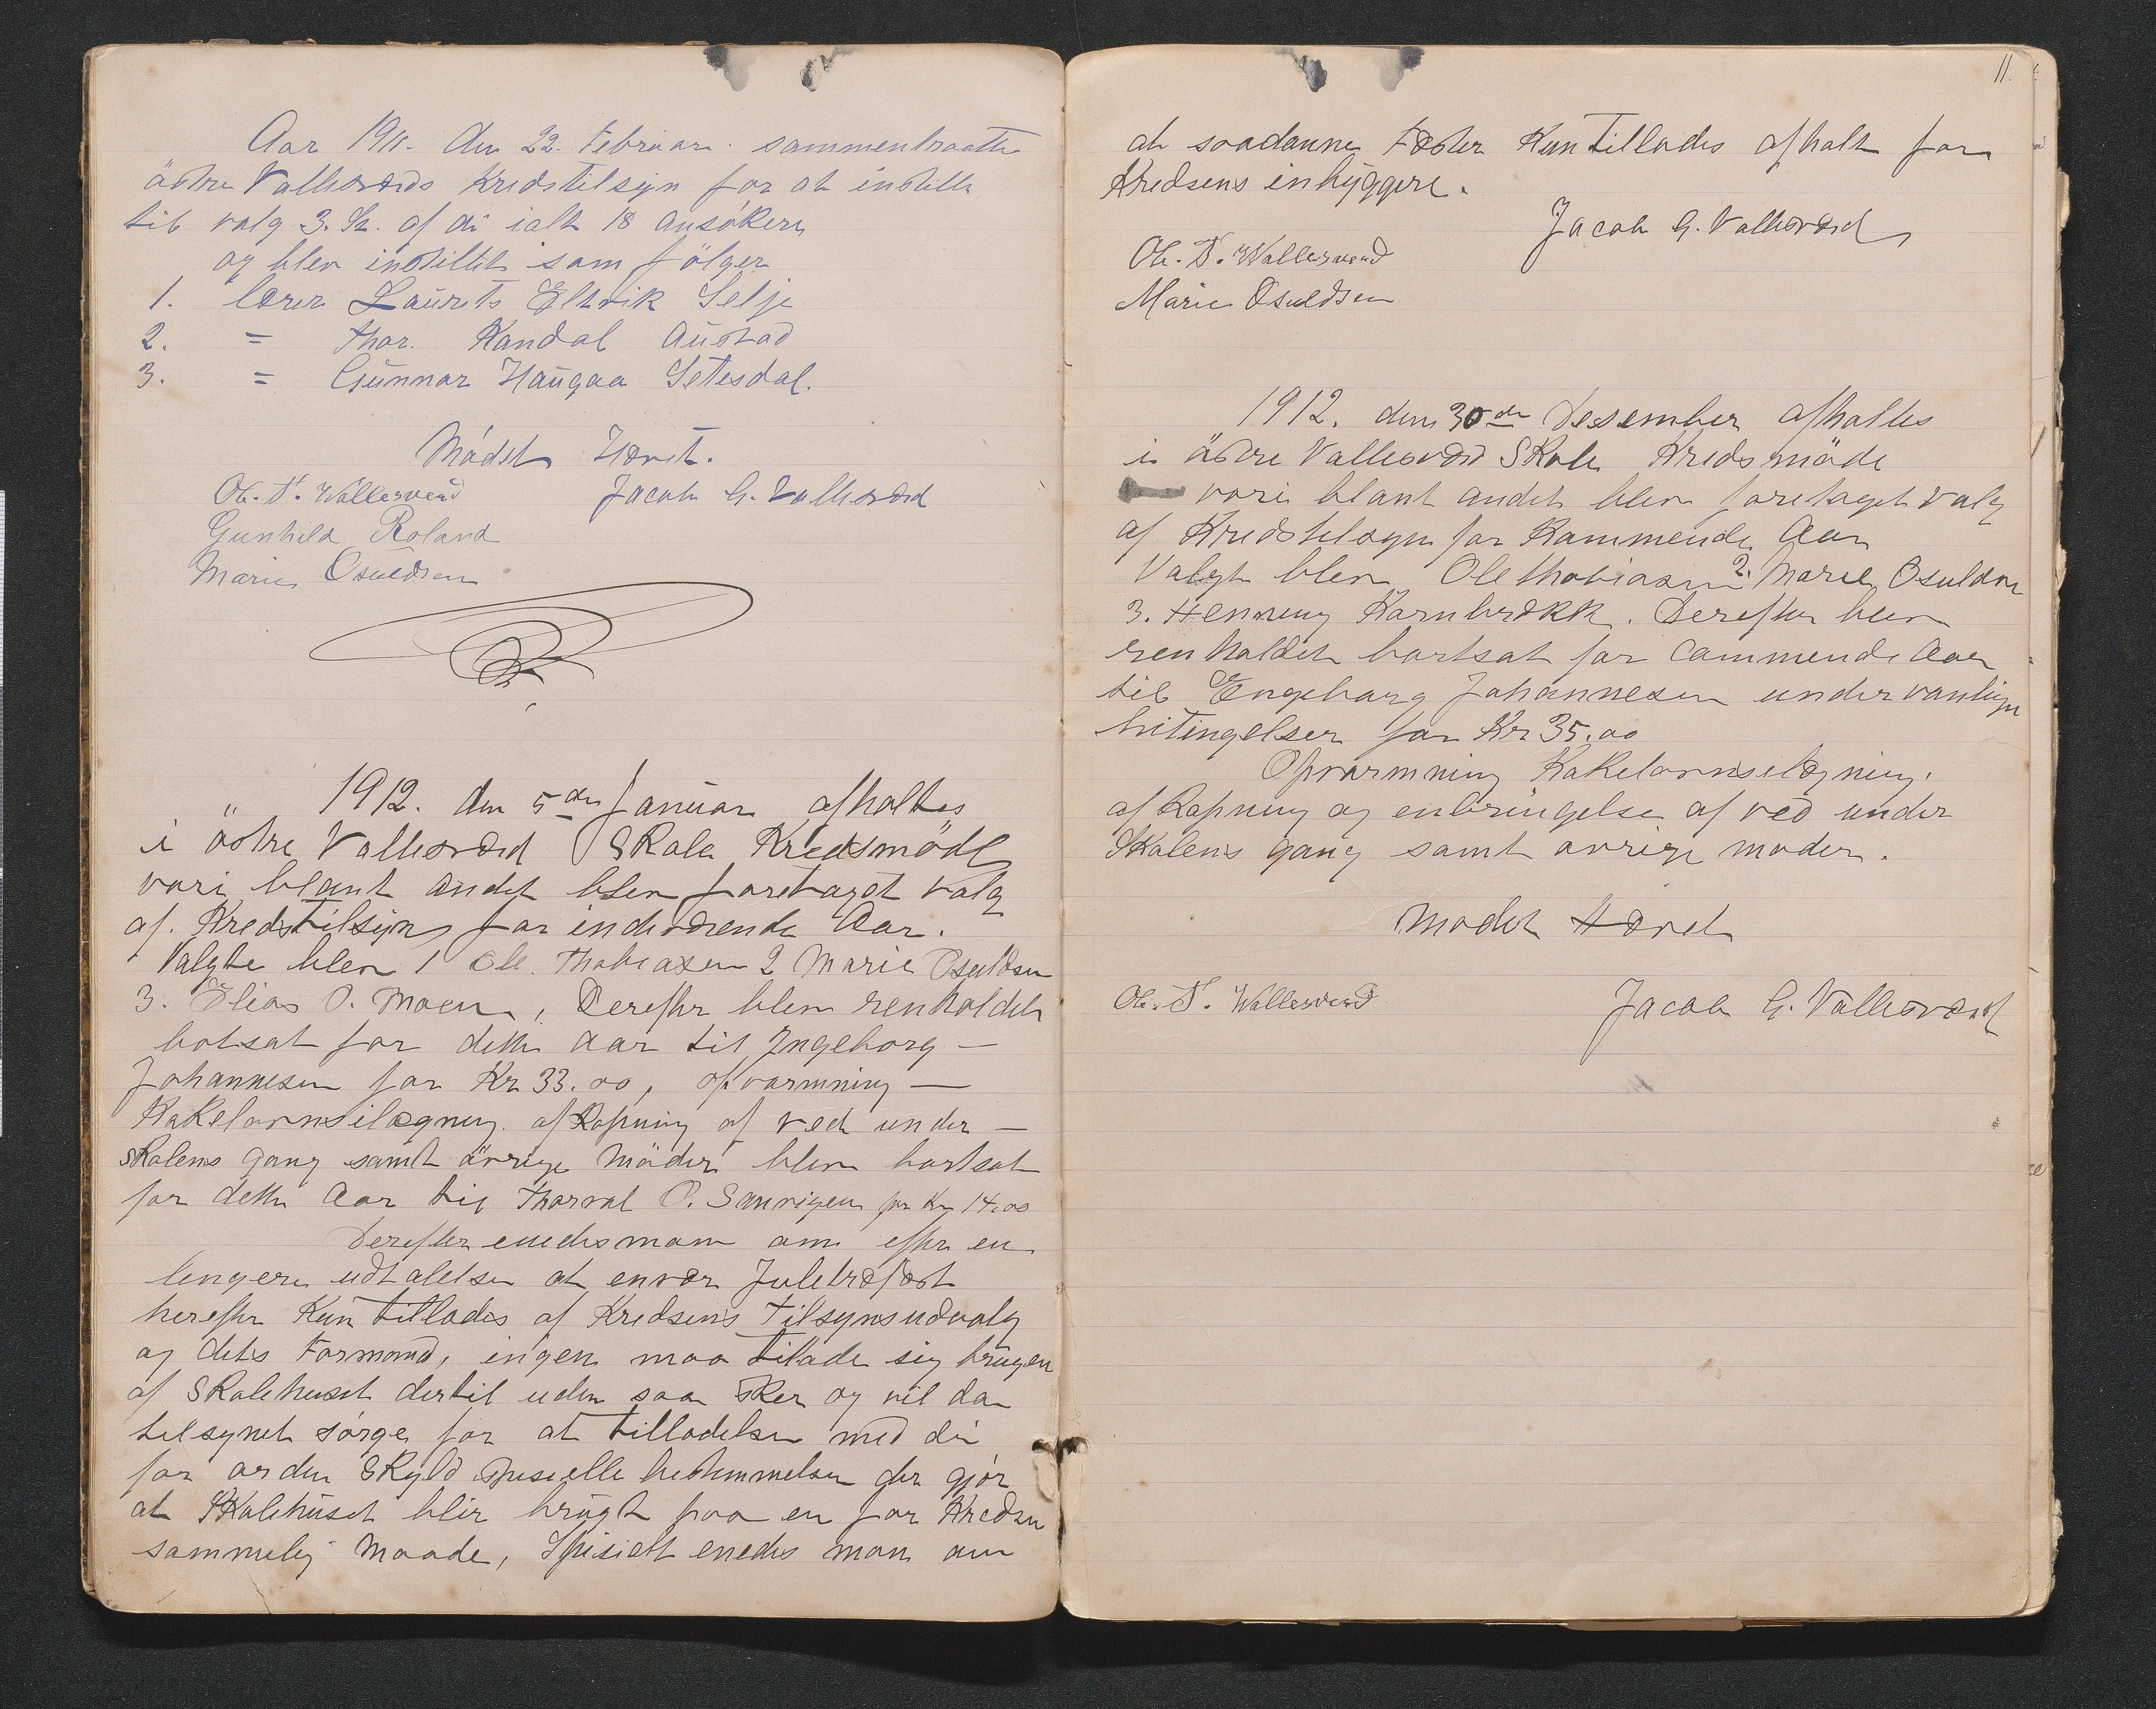 Aar 1911. den 22. Februar. sammentraatte
östre Vallesværds Kredstilsyn for at instille
til valg 3. St. af di ialt 18 ansökere
og blev instillet som fölger
1. lærer Laurits Eltvik Selje
2. = Thor. Kandal Austad
3. = Gunnar Haugaa Setesdal.
Mödet Hævet.
Ole. T. Wallesverd Jacob G. Vallesværd
Gunhild Roland
Marie Osuldsen
1912. den 5te Januar afholtes
i östre Vallesværd Skole Kredsmöde
vori blant andet blev foretaget valg
af. Kredstilsyn for indeværende Aar.
Valgte blev 1 Ole. Thobiasen 2 Marie Osuldsen
3. Elias O. Moen, Derefter blev renholdet
botsat for dette aar til Ingeborg —
Johannesen for Kr 33.00, opvarmning —
Kakelovnsilægning. afkapning af ved under —
skolens gang samt övrige Möder blev bortsat
for dette Aar til Thorval O. Sanvigen for Kr 14.00
Derefter enedes man om efter en
lengere udtalelse at enver Juletræfæst
herefter Kun tillades af Kredsens Tilsynsudvalg
og dets Formand, ingen maa tilade sig brugen
af Skolehuset dertil uden saa sker og vil da
tilsynet sörge for at tilladelsen med di
for orden skyld spesielle bestemmelser der gjör
at Skolehuset blir brugt paa en for Kredsen
sammelig Maade, Spisielt enedes man om
11.
at saadanne Fæster Kun tillades afholt for
Kredsens inbyggere.
Jacob G. Vallesværd
Ole. T. Wallesverd
Marie Osuldsen
1912. den 30de Desember afholtes
i östre Vallesværd Skole Kredsmöde
vori blant andet blev foretaget valg
af Kredstilsyn for Kommende Aar
Valgt blev Ole Thobiasen 2. Marie Osuldsen
3. Henneng Kornbrekk. Derefter blev
renholdet bortsat for Commende Aar
til Engeborg Johannesen under vanlige
bitingelser for Kr 35.00
Opvarmning Kakelovnsilægning.
afkapning og enbringelse af ved under
Skolens gang samt øvrige møder.
Mødet Hævet
Ole. T. Wallesverd Jacob G. Vallesværd